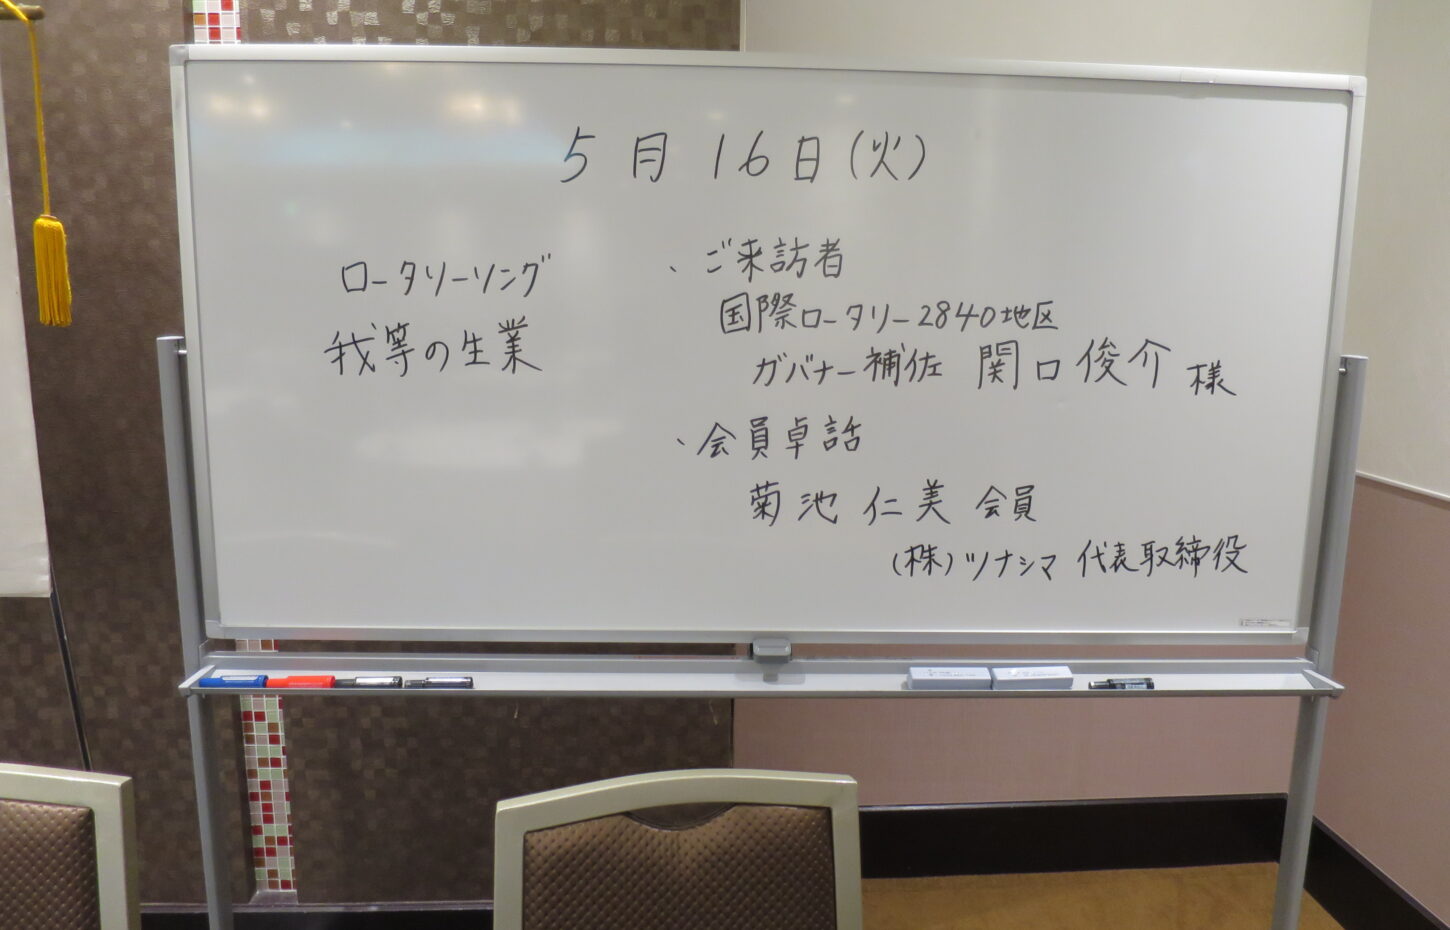 5月16日(火)
ロータリーソング
我等の生業
、ご来訪者
国際ロータリー2840地区
ガバナー補佐 関口俊介 様
、会員卓話
菊池仁美 会員
(株)ツナシマ 代表取締役